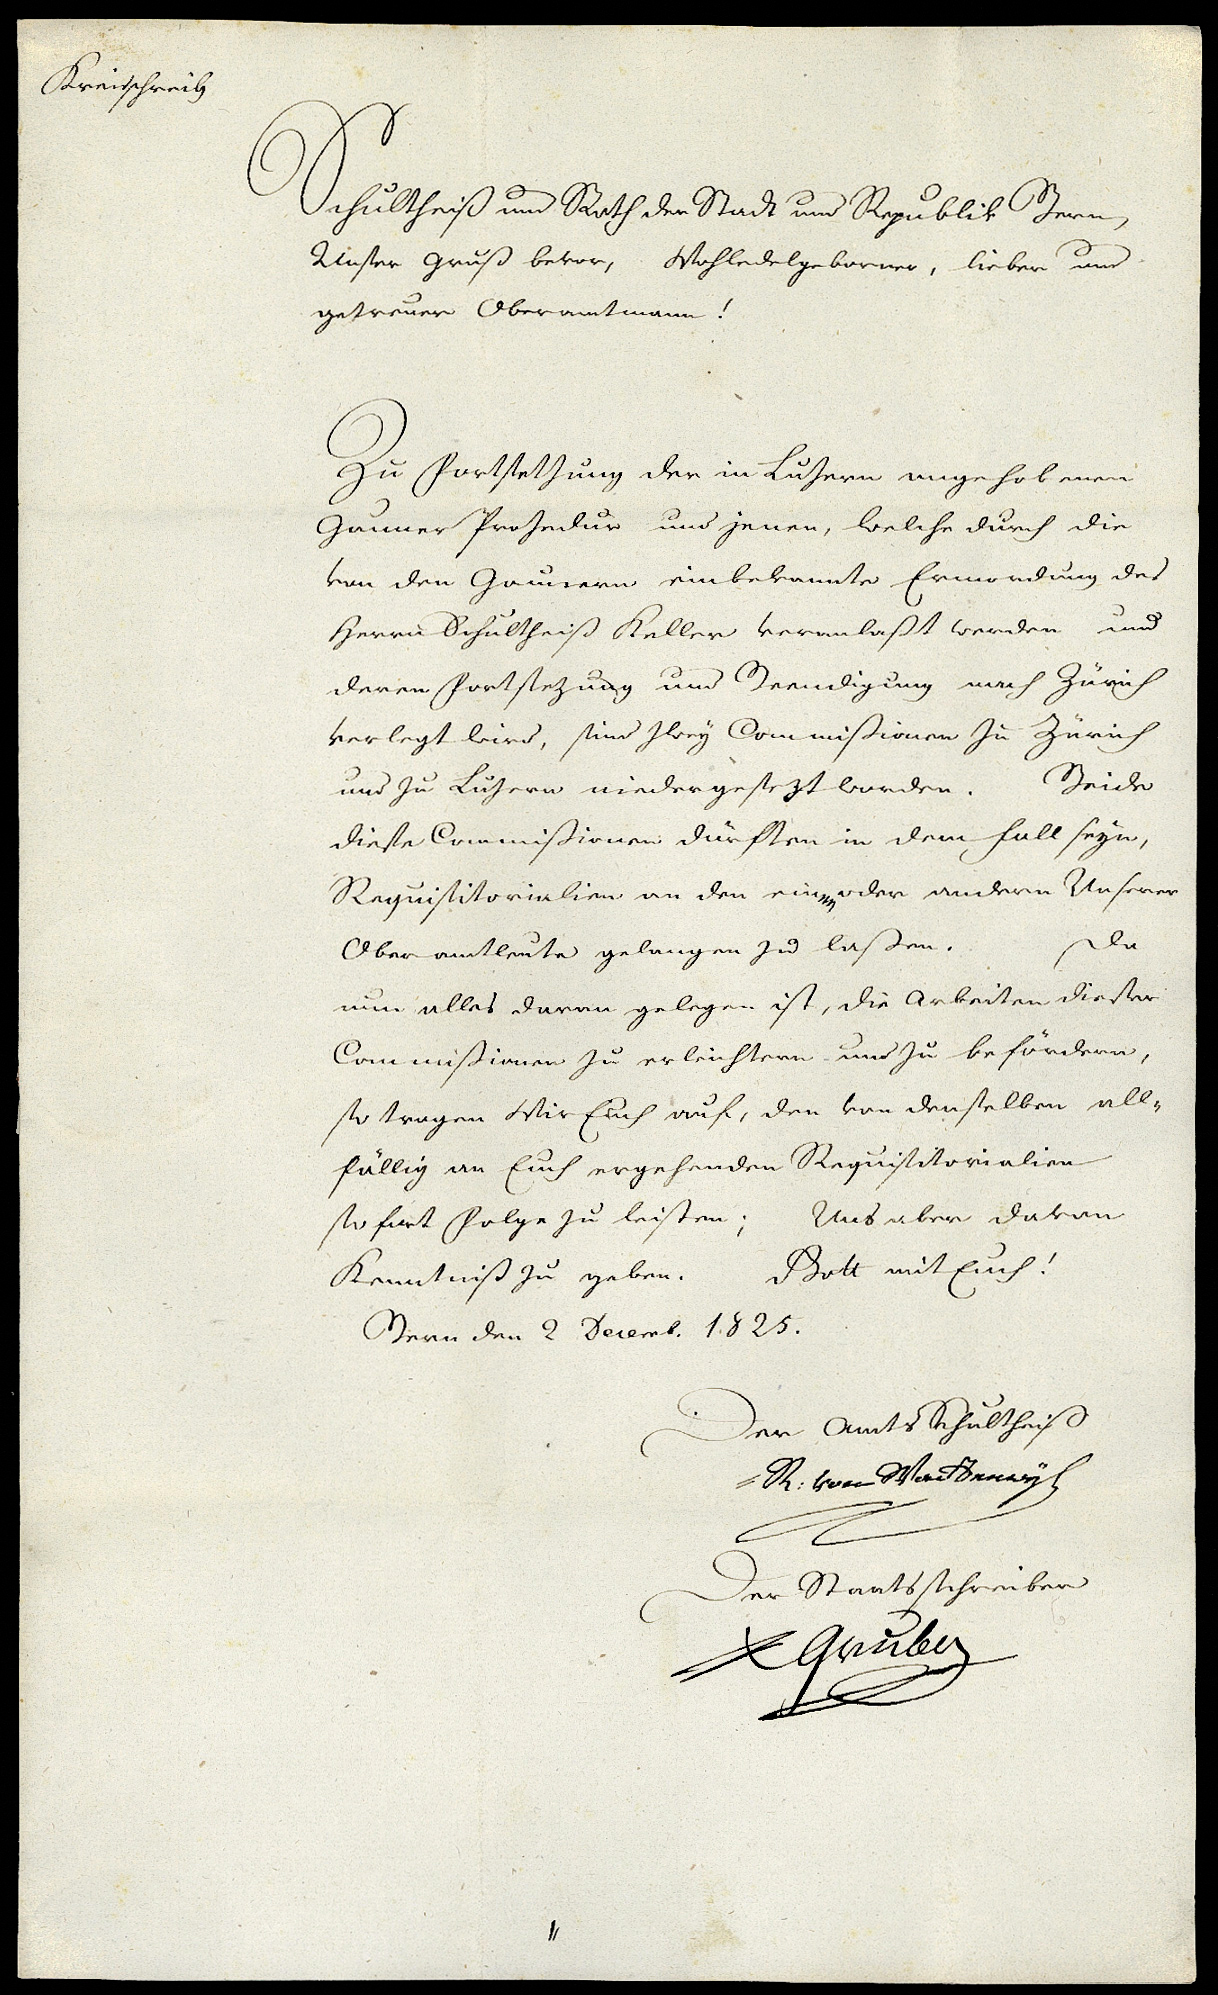 Kreisschreib
Schultheiß und Rath der Stadt und Republik Bern,
Unser Gruß bevor, Wohledelgeborner, lieber und
getreuer Oberamtmann!
Zu Fortsetzung der in Luzern angehobenen
Gauner Prozedur und jener, welche durch die
von den Gaunern einbekannte Ermordung des
Herrn Schultheiß Keller veranlaßt worden und
deren Fortsetzung und Beendigung nach Zürich
verlegt wird, sind zwey Commißionen zu Zürich
und zu Luzern niedergesezt worden. Beide
diese Commißionen dürften in dem Fall seyn,
Requisitorialien an den ein oder andern Unserer
Oberamtleute gelangen zu laßen. Da
nun alles daran gelegen ist, die Arbeiten dieser
Commißionen zu erleichtern und zu befördern,
so tragen Wir Euch auf, den von denselben all-
fällig an Euch ergehenden Requisitorialien
sofort Folge zu leisten; Uns aber davon
Kenntniß zu geben. Gott mit Euch!
Bern den 2 Decemb. 1825.
Der Amts Schultheiß
R: von Wattenwyl
Der Staatsschreiber
Gruber